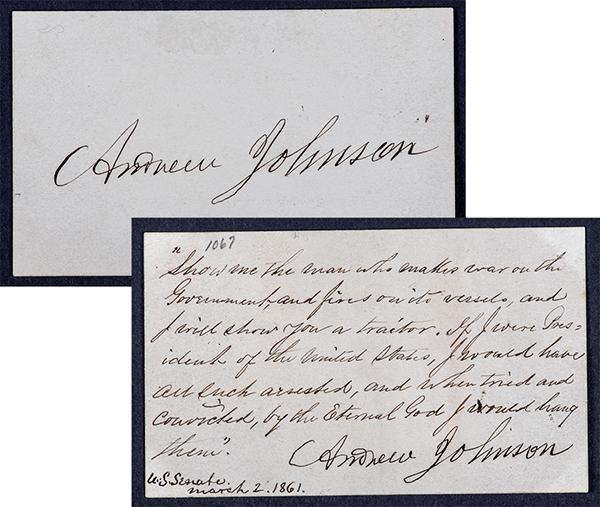 Andrew Johnson
1067
"Show me the man who makes war on the
Government, and fires on its vessels, and
I will show you a traitor. If I were Pres=
ident of the United States, I would have
all such arrested, and when tried and
convicted, by the Eternal God I would hang
them".
Andrew Johnson
U.S. Senate.
march 2. 1861.